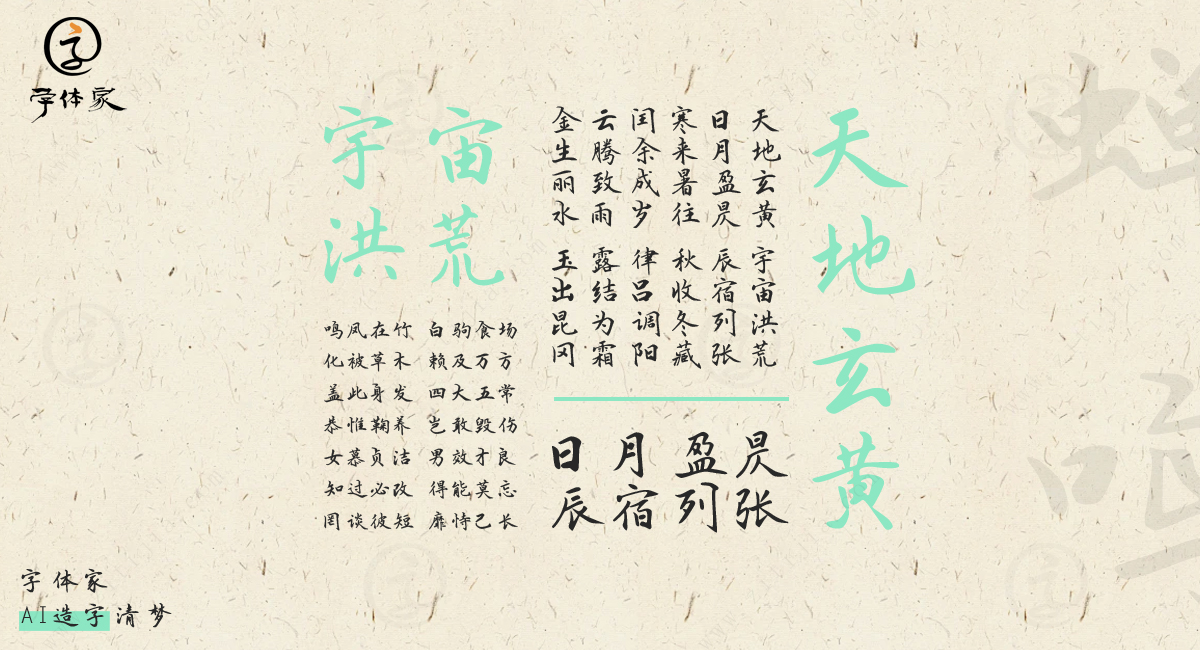 字体家
天地玄黄
宇宙
洪荒
天地玄黄 宇宙洪荒
日月盈昃 辰宿列张
寒来暑往 秋收冬藏
闰余成岁 律吕调阳
云腾致雨 露结为霜
金生丽水 玉出昆冈
日月盈昃
辰宿列张
鸣凤在竹 白驹食场
化被草木 赖及万方
盖此身发 四大五常
恭惟鞠养 岂敢毁伤
女慕贞洁 男效才良
知过必改 得能莫忘
罔谈彼短 靡恃己长
字体家
AI造字清梦